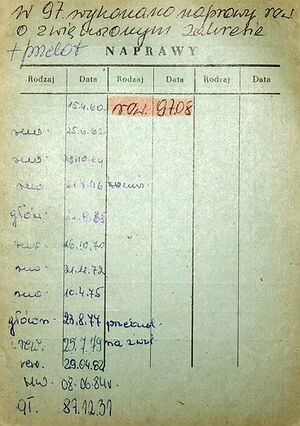 W 97 wykonano naprawy rew
o zwiększonym zakresie
+ przelot
NAPRAWY
Rodzaj Data Rodzaj Data Rodzaj Data
15.4.60 rew. 97.08
rew 25.6.62
rew
rew
główn 21.9.68
rew 16.10.70
rew 21.11.72
rew 10.4.75
główn. 23.8.77
rew. 25.7.79 na zwł
rew. 29.04.82
rew. 08.06.84r.
gł. 87.12.31